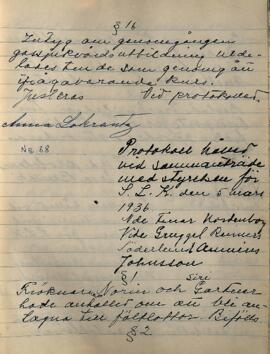 § 16
Intyg om genomgången
gassjukvårdsutbildning utde-
lades till de som genomgått
ifrågavarande kurs.
Justeras Vid protokollet.
Anna Lokrantz
No 68
Protokoll hållet
vid sammanträde
med styrelsen för
S. L. K. den 5 mars
1936
Nde Einar Nordenborg
Vde Gruggel
Söderlund
Johnsson
§ 1
Siri
Fröknarna Norin och
hade anhållit om att bli an-
tagna till fältlottor. Bifölls
§ 2